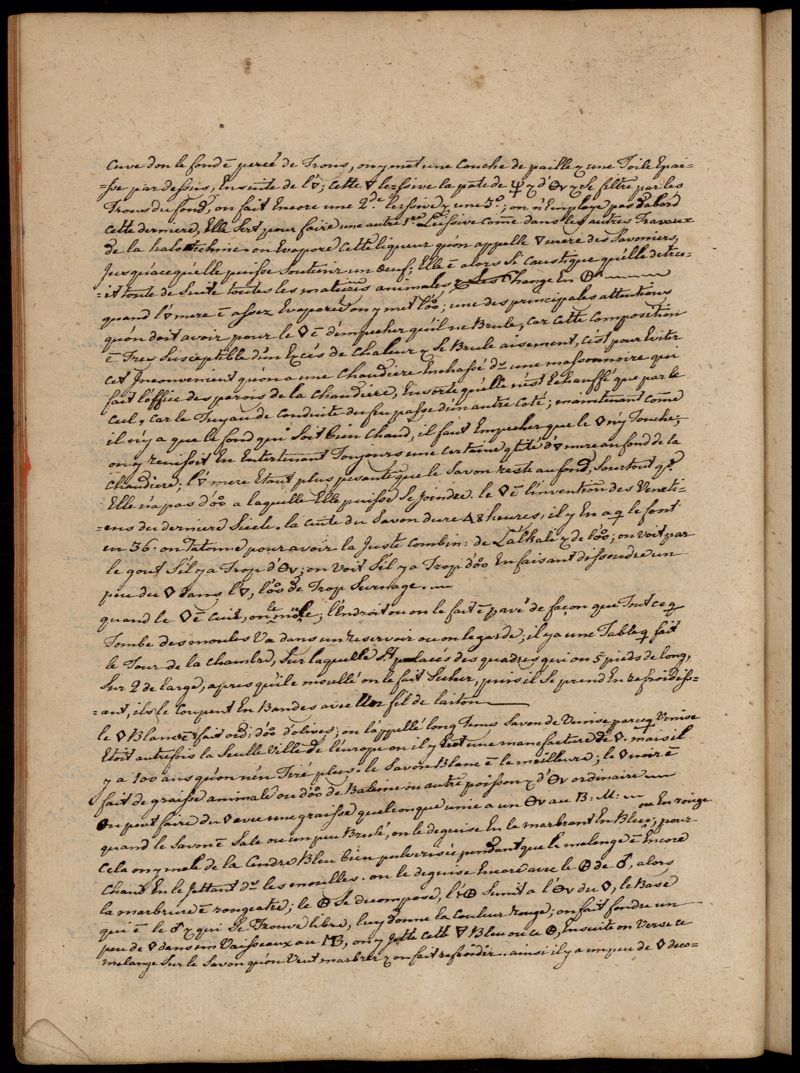 Cuve don le fond ē percé de Trous, on y met une couche de paille & une Toile Epai-
=sse par dessus, Ensuite de l'🜄; cette 🜄 lessive la pate de & d' & Se filtre par les
Trous du fond, on fait Encore une 2.de lessive & une 3.e; on n'Employe pas d'abord
cette derniere, Elle Sert pour faire une autre 1.ere Lessive come dans les autres Travaux
de la halotechnie. on Evapore cette liqueur qu'on appelle mere des Savoniers
Jusqu'a ce qu'elle puisse Soutenir un Oeuf; Elle ē alors si caustique qu'elle détru-
=it toute de Suite toutes les matieres animales, & Les Change En
quand l' mere ē assez Evaporée on y met l'; une des principales attentions
qu'on doit avoir pour le ē d'empecher qu'il ne Brule, car cette Composition
ē Tres Susceptible d'un Excés de Chaleur & Se Brule aisement, c'est pour Eviter
cet Inconvenient qu'on a une chaudiere Enchassé ds une massonnoire qui
fait l'office des parois de la chaudiere, En sorte qu'elle n'est Echauffé que par le
cul, car le Tuyau de conduite du feu passe d'un autre coté; maintenant come
il n'y a que le fond qui Soit bien Chaud, il faut Empecher que le n'y Touche;
on y reussit En Entretenant Toujours une certaine qtité d' mere au fond de la
chaudiere; l' mere Etant plus pesante que le Savon reste au fond, Sourtout qd.
Elle n'a pas d' a laquelle Elle puisse Se joindre. le ē l'invention des Veneti-
=ens du dernier Siecle. la cuite du Savon dure 48 heures, il y En a q le font
en 36. on Tatonne pour avoir la Juste Combin: de L'alkali & de l'; on voit par
le gout S'il y a Trop d'; on voit S'il y a Trop d' En faisant dissoudre un
peu du dans l'🜄, l' de Trop Surnage.
quand le ē Cuit, on le moule; l'Endroit ou on le fait ē pavé de façon que Tout ce q
Tombe des moules Va dans un reservoir ou on le garde; il y a une Table q fait
le Tour de la chambre, Sur laquelle St placés des quadres qui on 5 pieds de long,
Sur 2 de large, apres qu'il ē moullé on le fait Secher, puis il Se prend En refroidiss-
=ant, ils le Coupent En Bandes avec un fil de laiton
le Blanc ē fait ord: d' d'olives; on l'appellé long Tems Savon de Venise parceq Venise
Etoit autrefois la Seulle Ville de l'europe ou il y Eut une manufacture de . mais il
y a 100 ans qu'on n'En Tiré plus. le Savon Blanc ē le meilleure; le noir ē
fait de graisse animale ou d' de Baleine ou autre poisson & d' ordinaire
On peut faire du avec une graisse quelconque unie a un au B: M:
quand le Savon ē Sale ou un peu Brulé, on le deguise En le marbrant En Bleu, ou En rouge pour-
Cela on y mele de la Cendre Bleu bien pulverisée pendant que le melange ē Encore
Chaud En le Jettant ds les moulles. on le deguise Encore avec le de ♂, alors
la marbrure ē rougeatre; le Se decompose, l' S'unit a l' du , le Base
qui ē le ♂ & qui Se Trouve libre, luy donne la Couleur rouge; on fait fondu un
peu de dans un Vaisseaux au MB, on y Jette cette Bleu ou ce , Ensuite on Verse ce
melange Sur le Savon qu'on Veut marbrer & on fait refroidir. ainsi il y a un peu de deco-